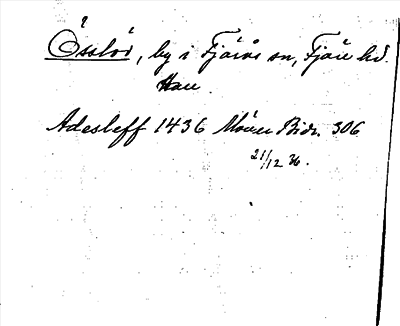 Össlöv, by i Fjärås sn, Fjäre hd.
Hall.
Adesleff 1436 Möller Bidr. 306
21/12 36.